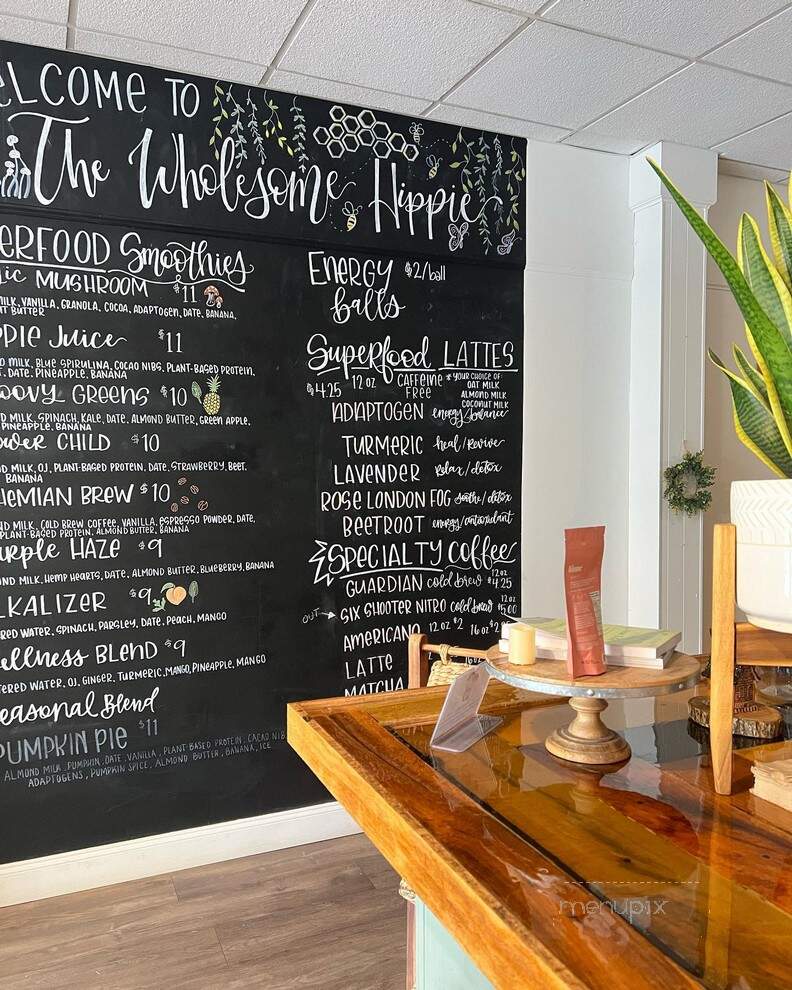 ELCOME TO
The Wholesome Hippie
ERFOOD Smoothies
IC MUSHROOM $11
MILK, VANILLA, GRANOLA, COCOA, ADAPTOGEN, DATE, BANANA,
T BUTTER
PPIE Juice $11
D MILK, BLUE SPIRULINA, COCAO NIBS, PLANT-BASED PROTEIN,
, DATE, PINEAPPLE, BANANA
OOVY GREENS $10
D MILK, SPINACH, KALE, DATE, ALMOND BUTTER, GREEN APPLE,
PINEAPPLE, BANANA
OWER CHILD $10
D MILK, OJ, PLANT-BASED PROTEIN, DATE, STRAWBERRY, BEET,
BANANA
HEMIAN BREW $10
ND MILK, COLD BREW COFFEE, VANILLA, ESPRESSO POWDER, DATE,
PLANT-BASED PROTEIN, ALMOND BUTTER, BANANA
URPLE HAZE $9
ND MILK, HEMP HEARTS, DATE, ALMOND BUTTER, BLUEBERRY, BANANA
LKALIZER $9
ERED WATER, SPINACH, PARSLEY, DATE, PEACH, MANGO
ELLNESS BLEND $9
TERED WATER, OJ, GINGER, TURMERIC, MANGO, PINEAPPLE, MANGO
Seasonal Blend
PUMPKIN PIE $11
ALMOND MILK, PUMPKIN, DATE, VANILLA, PLANT-BASED PROTEIN, CACAO NIB
ADAPTOGENS, PUMPKIN SPICE, ALMOND BUTTER, BANANA, ICE
ENERGY $2/ball
balls
Superfood LATTES
$4.25 12 OZ CAFFEINE FREE
* YOUR CHOICE OF:
OAT MILK
ALMOND MILK
COCONUT MILK
ADAPTOGEN energy/balance
TURMERIC heal/revive
LAVENDER relax/detox
ROSE LONDON FOG soothe/detox
BEETROOT energy/antioxidant
SPECIALTY Coffee
GUARDIAN cold brew 12 OZ $4.25
OUT → SIX SHOOTER NITRO cold brew 12 OZ $5.00
AMERICANO 12 OZ $2 16 OZ $2
LATTE
MATCHA
menupix